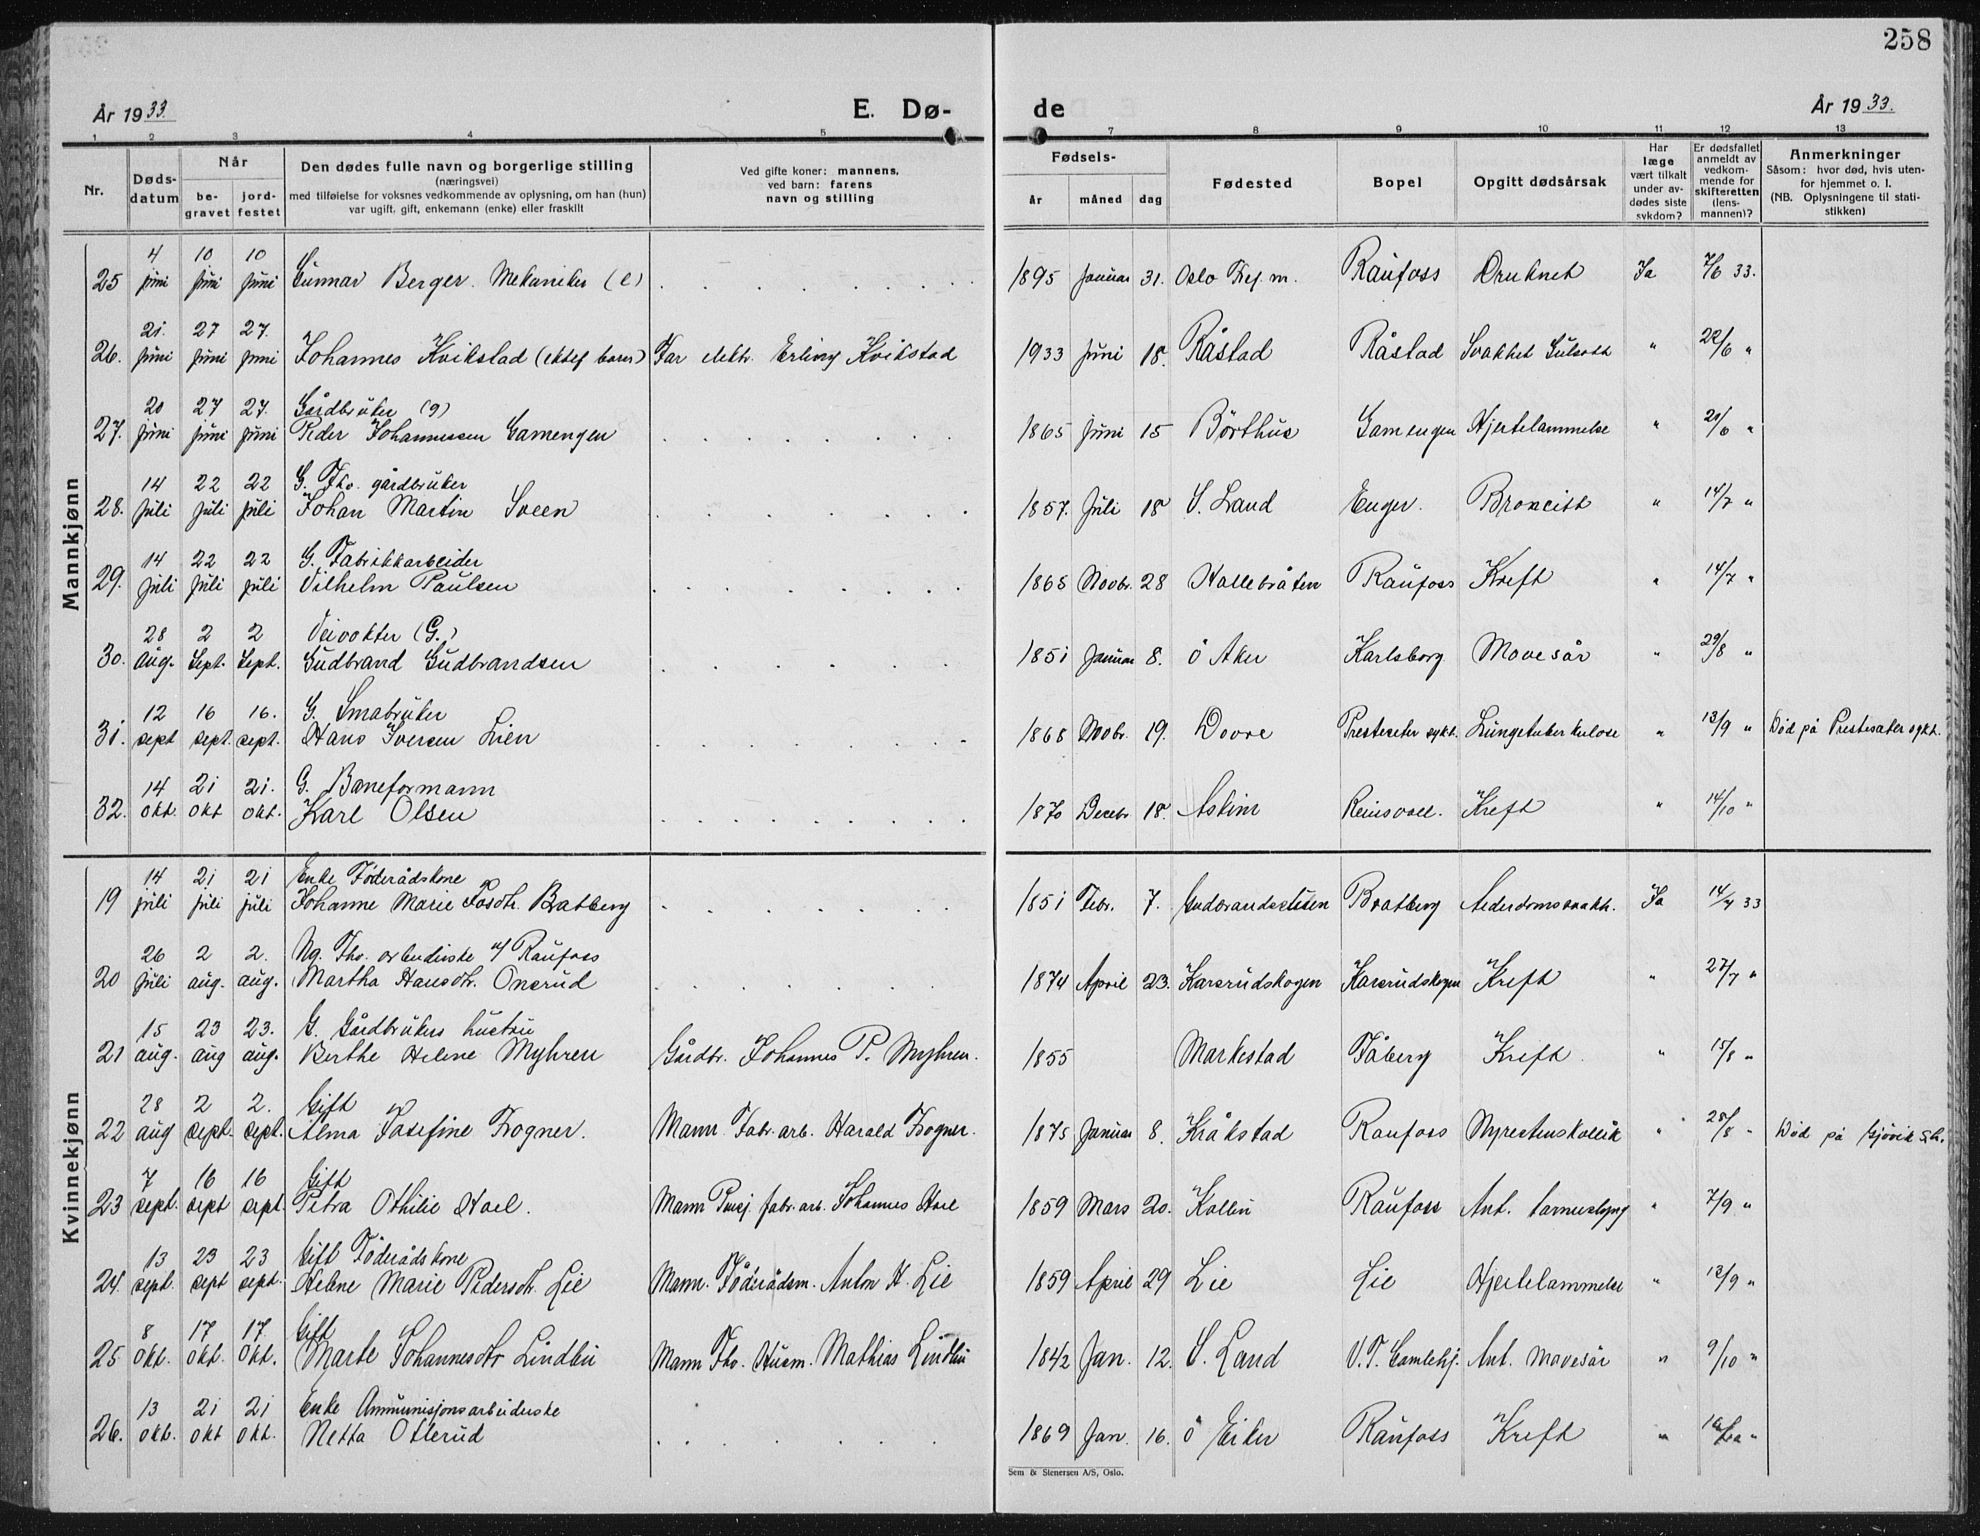 258
År 1933.
E. Dø-
de
År 1933.
1 2 3 4 5 7 8 9 10 11 12 13
Nr.
Døds-
datum
Når
be-
gravet
jord-
festet
Den dødes fulle navn og borgerlige stilling
(næringsvei)
med tilføielse for voksnes vedkommende av oplysning, om han (hun)
var ugift, gift, enkemann (enke) eller fraskilt
Ved gifte koner: mannens,
ved barn: farens
navn og stilling
Fødsels-
år måned dag
Fødested
Bopel
Opgitt dødsårsak
Har
læge
vært tilkalt
under av-
dødes siste
sykdom?
Er dødsfallet
anmeldt av
vedkom-
mende for
skifteretten
(lens-
mannen)?
Anmerkninger
Såsom: hvor død, hvis uten-
for hjemmet o. l.
(NB. Oplysningene til stati-
stikken)
Mannkjønn
4 10 10
25 juni juni juni Gunnar Berger. Mekaniker (e) 1895 Januar 31. Oslo Raufoss Druknet Ja 7/6 33.
21. 27 27.
26. juni juni juni Johannes Kvikstad Far elektr. Erling Kvikstad 1933 Juni 18. Råstad Råstad Svakhet Gulsott " 22/6 "
20 27 27. Gårdbruker (g)
27. juni juni juni Peder Johannessen Gamengen 1865 Juni 15 Børthus Gamengen Hjertelammelse " 20/6 "
14 22 22 G. Fhv. gårdbruker
28. juli juli juli Johan Martin Sveen 1857. Juli 18 S. Land Enger. " 14/7 "
14 22 22 G. Fabrikkarbeider
29. juli juli juli Vilhelm Paulsen 1865 Novbr. 28 Kallebråten Raufoss Kreft " 14/7 "
28 2 2 Veivokter (G.)
30. aug. Sept. Sept. Gudbrand Gudbrandsen 1851 Januar 8. Ø Aker Karlsborg Mavesår " 29/8 "
12 16 16. G. Småbruker
31. sept sept. sept. Hans Iversen Lien 1868 Novbr. 19. Dovre Presteseter sykh. Lungetuberkulose " 13/9 " Død på Presteseter sykh.
14 21 21. G. Baneformann
32. okt. okt okt. Karl Olsen 1870 Decebr 18. Askim Reinsvoll. Kreft " 14/10 "
Kvinnekjønn
14 21 21 Enke Føderådskone
19 juli juli juli Johanne Marie Bratberg 1851 Febr. 7. Bratberg Alderdomssvakh. Ja 33
26 2 2. Ug. Fhv. arbeiderske v/ Raufoss
20 juli aug. aug. Martha Hansdtr. Onsrud 1874 April 23. Karsrudskogen Karsrudskogen Kreft " 27/7 "
15 23 23. G. Gårdbrukers hustru
21 aug. aug aug. Berthe Helene Myhren Gårdbr. Johannes P. Myhren. 1855 Markestad Fåberg Kreft. " 15/8 "
28 2 2. Gift
22 aug sept. sept. Alma Josefine Fogner. Mann Fabr. arb. Harald Fogner. 1875 Januar 8. Kråkstad Raufoss Nyrestenskolikk " 28/8 " Død på Gjøvik s.h.
7 16 16 Gift
23 sept. sept sept. Petra Othilie Hoel. Mann Pensj. fabr. arb. Johannes Hoel 1859 Mars 20. Raufoss Ant. tarmslyng " 7/9 "
13 23 23 Gift Føderådskone
24. sept. sept sept. Helene Marie Pedersdtr. Lie Mann. Føderådsm. Anton H. Lie 1859 April 29 Lie Lie Hjertelammelse " 13/9 "
8 17 17. Gift
25 okt. okt. okt. Marte Johannesdtr Lindbu Mann Fhv. Husm. Mathias Lindbu 1842 Jan. 12. S. Land V.T. Gamlehj. Ant. mavesår " 9/10 "
13 21 21 Enke Ammunisjonsarbeiderske
26. okt. okt okt. Netta Otterud 1869 Jan. 16. Ø Eiker Raufoss Kreft " "
Sem & Stenersen A/S, Oslo.